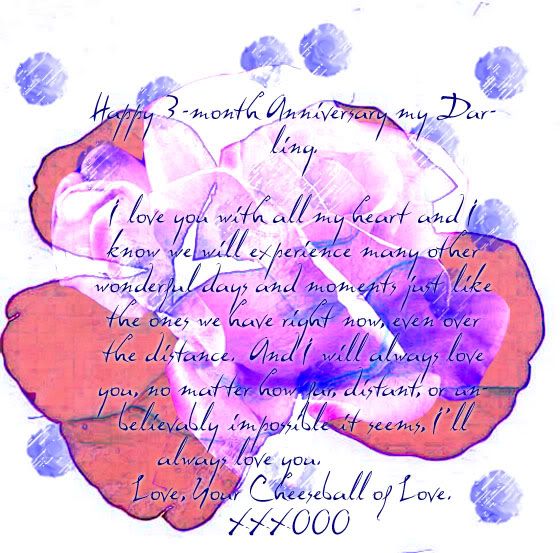 Happy 3-month Anniversary my Dar-
ling.
I love you with all my heart and I
know we will experience many other
wonderful days and moments just like
the ones we have right now, even over
the distance. And I will always love
you, no matter how far, distant, or un
believably impossible it seems, I'll
always love you.
Love, Your Cheeseball of Love.
XXXOOO